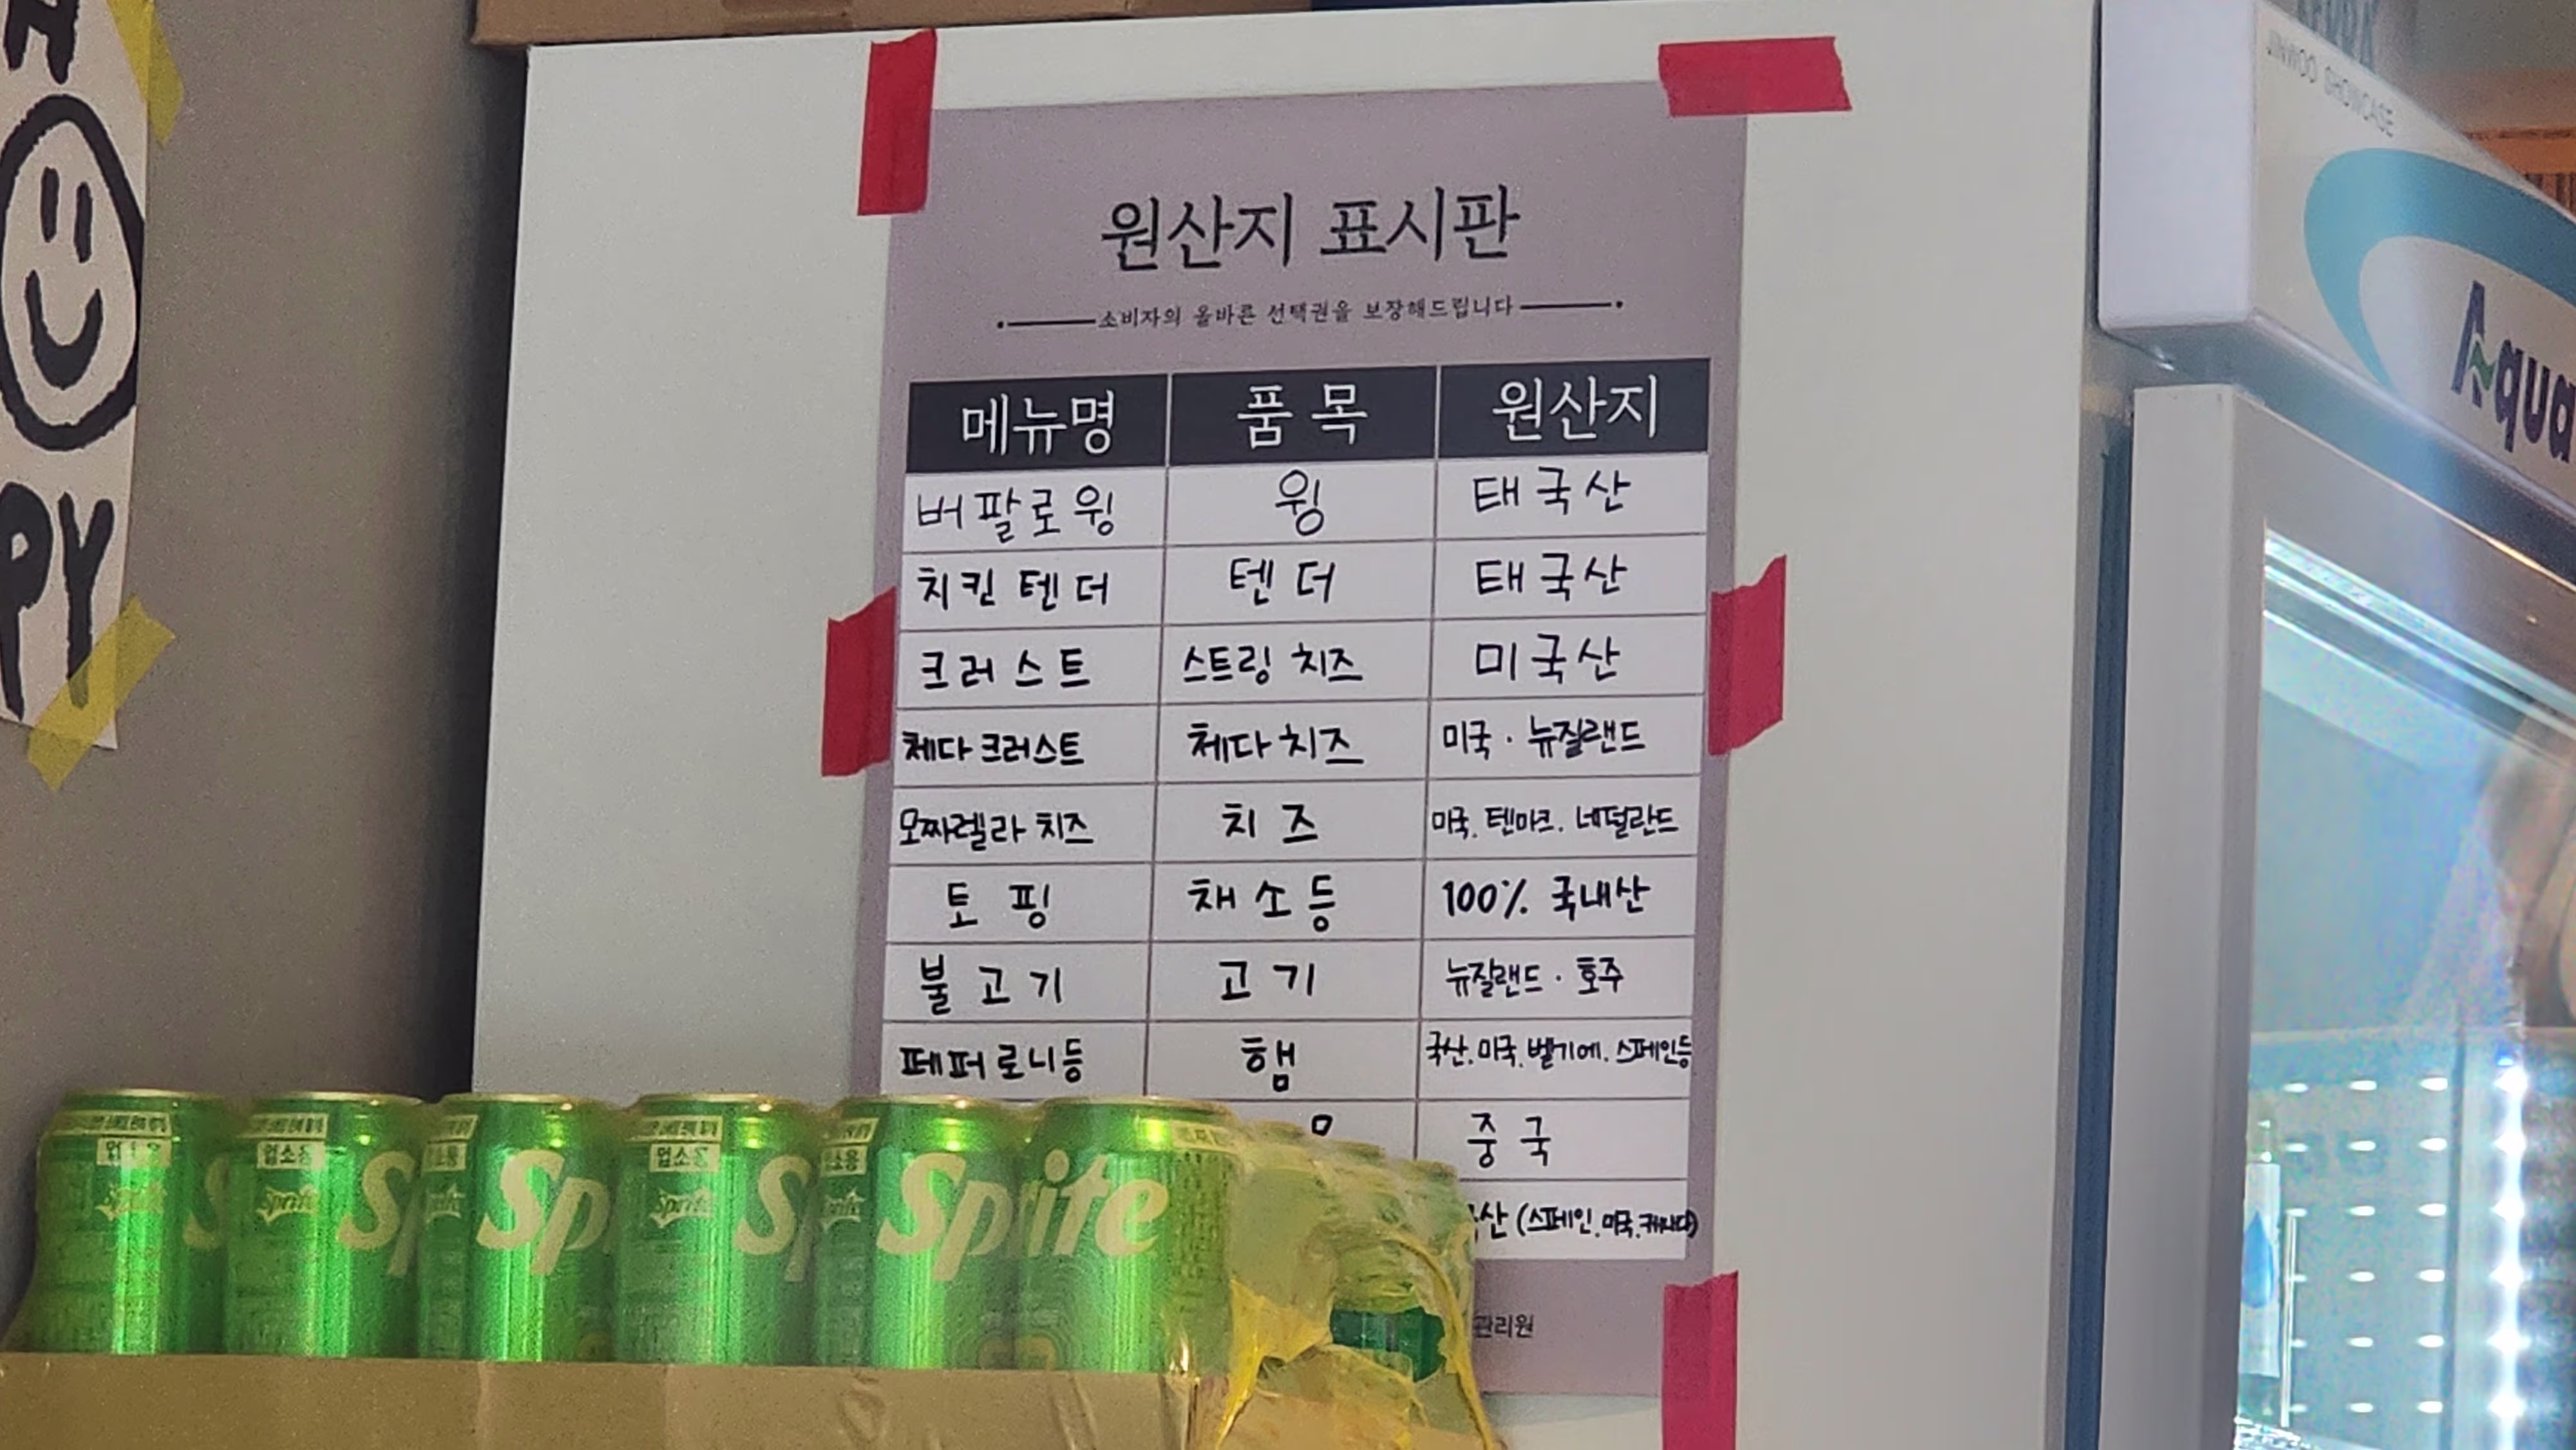 PY
JINWOO SHOWCASE
Aqua
원산지 표시판
소비자의 올바른 선택권을 보장해드립니다
메뉴명 품목 원산지
버팔로윙 윙 태국산
치킨텐더 텐더 태국산
크러스트 스트링 치즈 미국산
체다크러스트 체다치즈 미국 · 뉴질랜드
모짜렐라 치즈 치즈 미국. 텐마크. 네덜란드
토핑 채소등 100% 국내산
불고기 고기 뉴질랜드 · 호주
페퍼로니등 햄 국산. 미국. 벨기에. 스페인등
중국
산 (스페인. 미국. 캐나다)
관리원
업소용
업소용
Sprite
Sprite
Sprite
Sp
Sprite